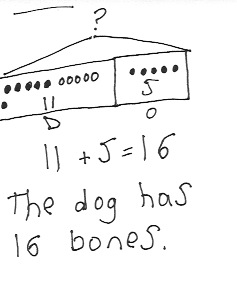 ?
11 5
D O
11 + 5 = 16
The dog has
16 bones.